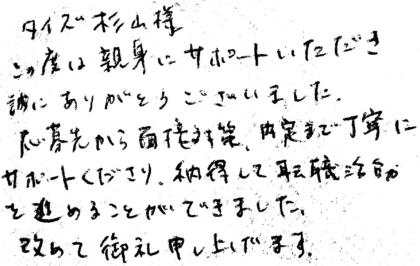 タイズ杉山様
この度は親身にサポートいただき
誠にありがとうございました。
応募先から面接対策、内定まで丁寧に
サポートくださり、納得して転職活動
を進めることができました。
改めて御礼申し上げます。